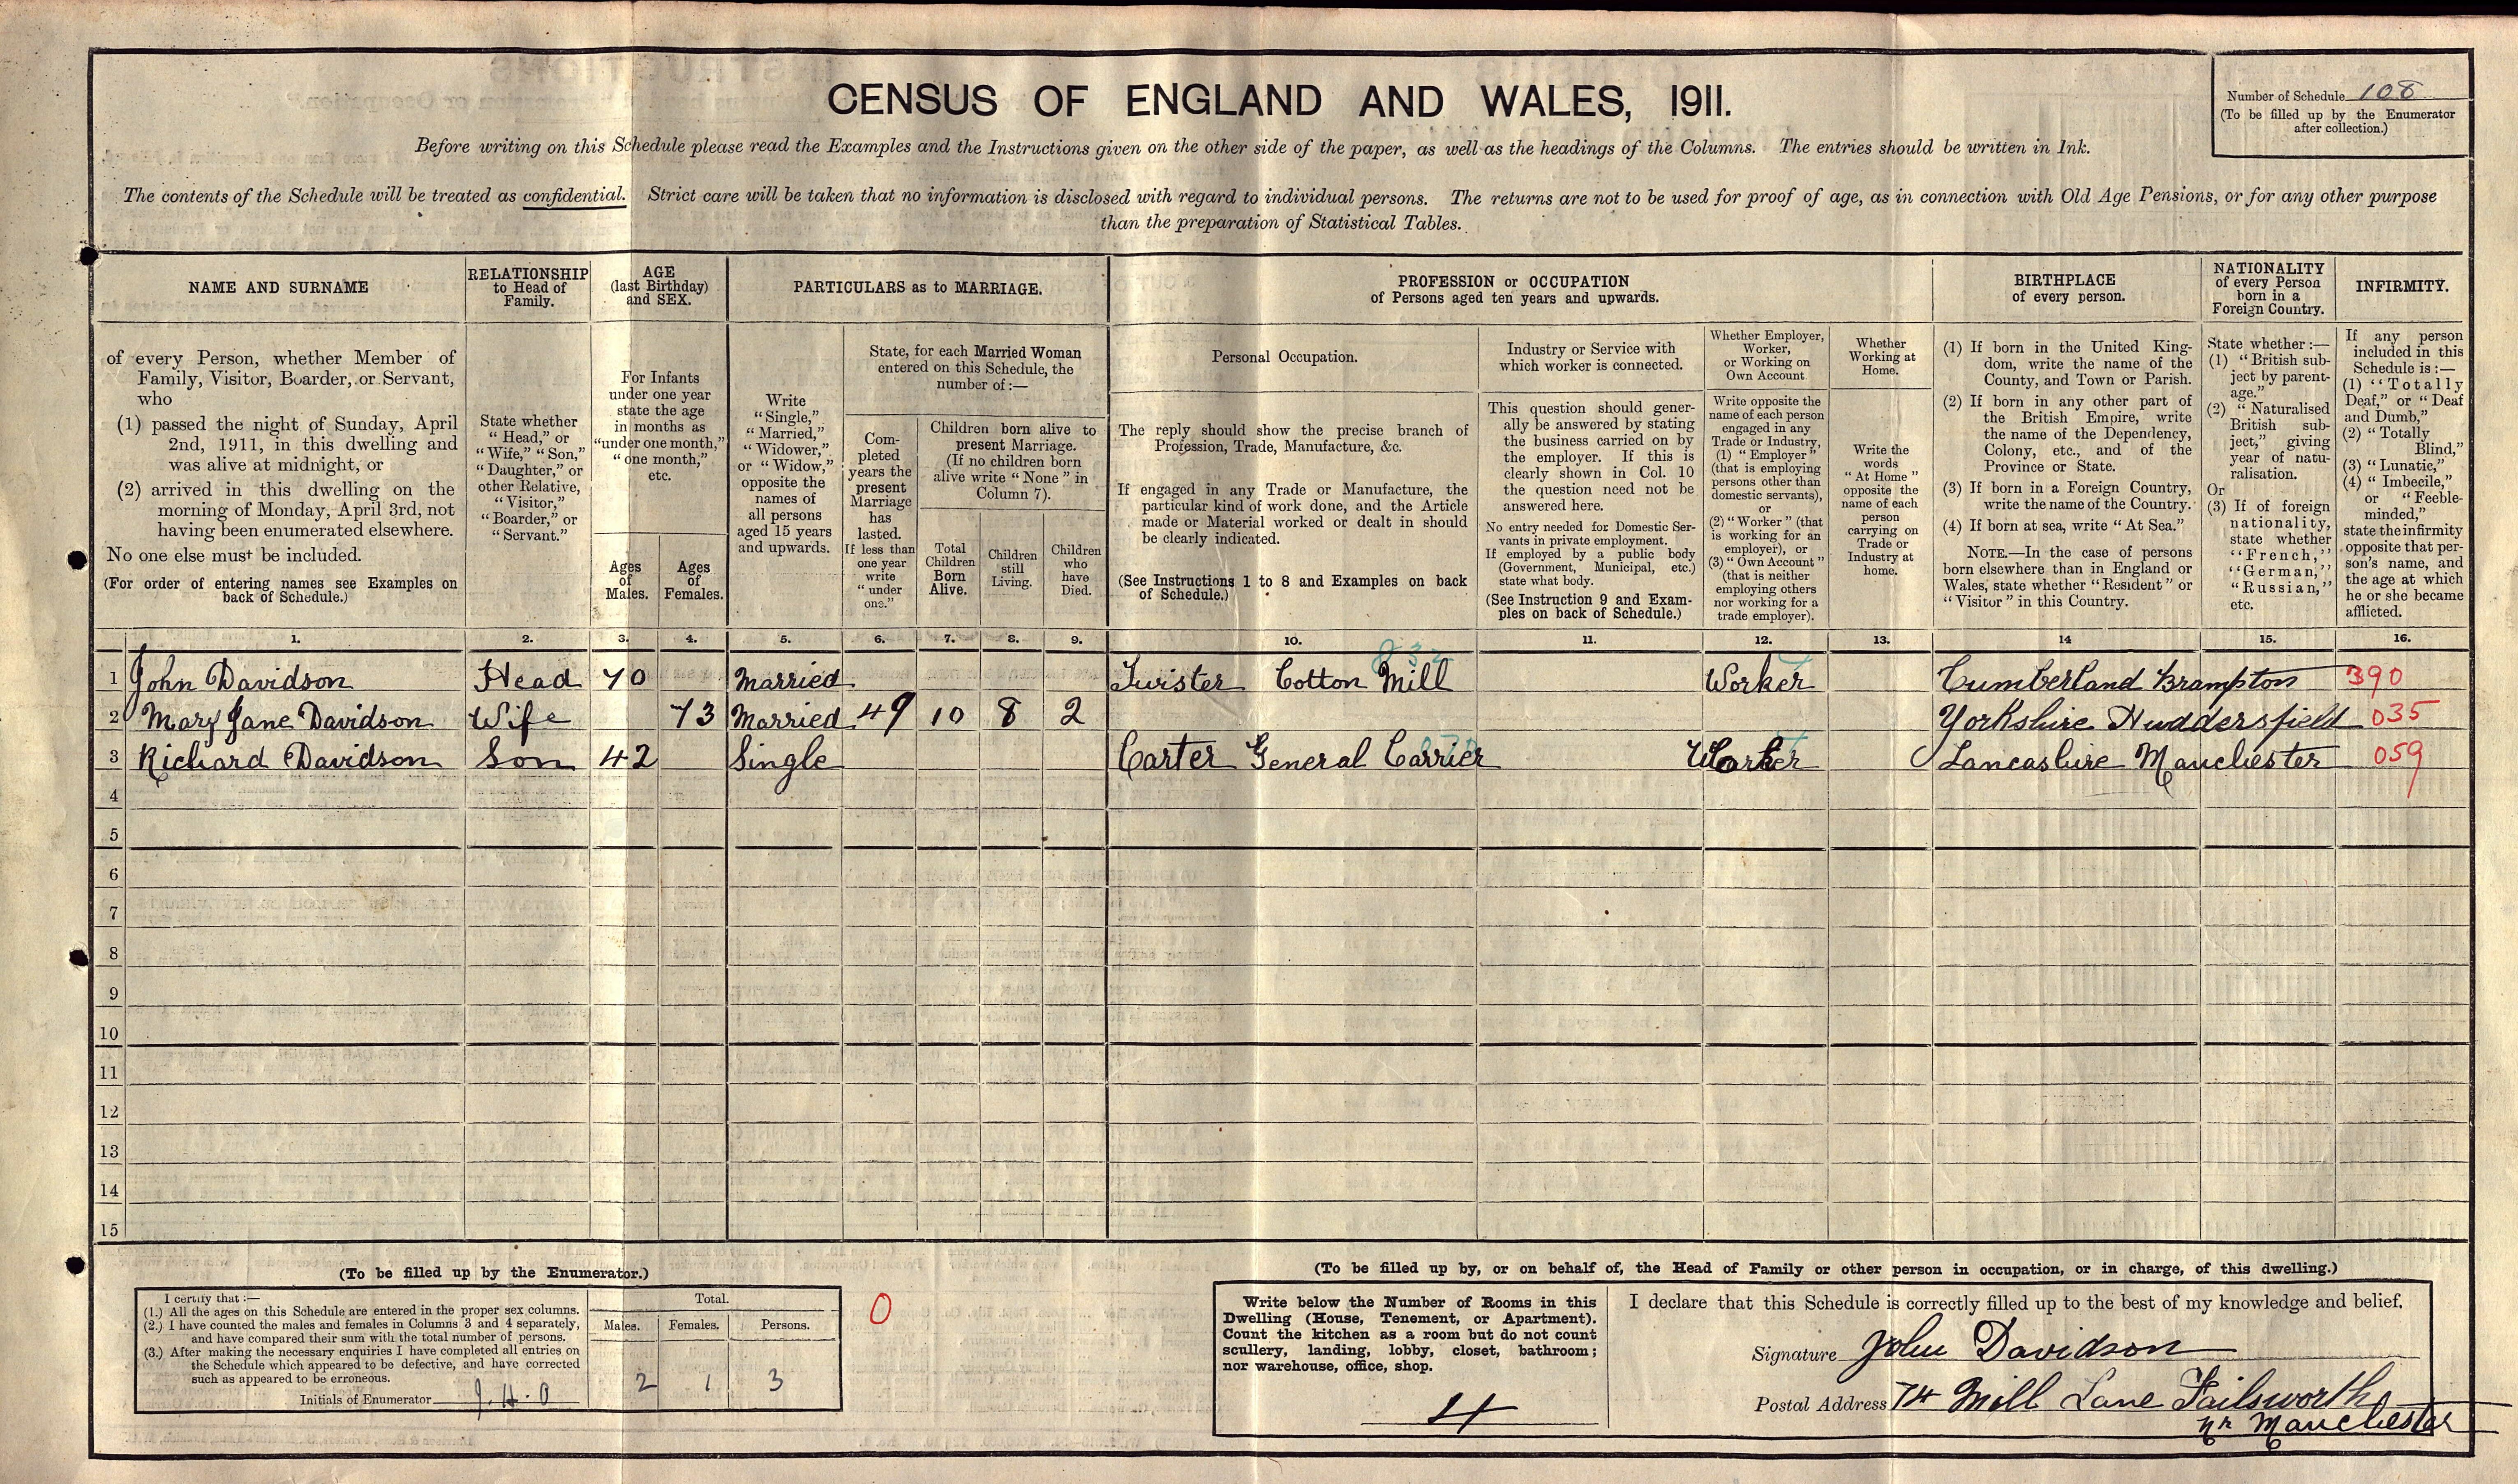 CENSUS OF ENGLAND AND WALES, 1911.
Number of Schedule 108
(To be filled up by the Enumerator
after collection.)
Before writing on this Schedule please read the Examples and the Instructions given on the other side of the paper, as well as the headings of the Columns. The entries should be written in Ink.
The contents of the Schedule will be treated as confidential. Strict care will be taken that no information is disclosed with regard to individual persons. The returns are not to be used for proof of age, as in connection with Old Age Pensions, or for any other purpose
than the preparation of Statistical Tables.
NAME AND SURNAME
RELATIONSHIP
to Head of
Family.
AGE
(last Birthday)
and SEX.
PARTICULARS as to MARRIAGE.
PROFESSION or OCCUPATION
of Persons aged ten years and upwards.
BIRTHPLACE
of every person.
NATIONALITY
of every Person
born in a
Foreign Country.
INFIRMITY.
of every Person, whether Member of
Family, Visitor, Boarder, or Servant,
who
(1) passed the night of Sunday, April
2nd, 1911, in this dwelling and
was alive at midnight, or
(2) arrived in this dwelling on the
morning of Monday, April 3rd, not
having been enumerated elsewhere.
No one else must be included.
(For order of entering names see Examples on
back of Schedule.)
State whether
"Head," or
"Wife," "Son,"
"Daughter," or
other Relative,
"Visitor,"
"Boarder," or
"Servant."
For Infants
under one year
state the age
in months as
"under one month,"
"one month,"
etc.
Ages
of
Males.
Ages
of
Females.
Write
"Single,"
"Married,"
"Widower,"
or "Widow,"
opposite the
names of
all persons
aged 15 years
and upwards.
State, for each Married Woman
entered on this Schedule, the
number of:—
Com-
pleted
years the
present
Marriage
has
lasted.
If less than
one year
write
"under
one."
Children born alive to
present Marriage.
(If no children born
alive write "None" in
Column 7).
Total
Children
Born
Alive.
Children
still
Living.
Children
who
have
Died.
Personal Occupation.
The reply should show the precise branch of
Profession, Trade, Manufacture, &c.
If engaged in any Trade or Manufacture, the
particular kind of work done, and the Article
made or Material worked or dealt in should
be clearly indicated.
(See Instructions 1 to 8 and Examples on back
of Schedule.)
Industry or Service with
which worker is connected.
This question should gener-
ally be answered by stating
the business carried on by
the employer. If this is
clearly shown in Col. 10
the question need not be
answered here.
No entry needed for Domestic Ser-
vants in private employment.
If employed by a public body
(Government, Municipal, etc.)
state what body.
(See Instruction 9 and Exam-
ples on back of Schedule.)
Whether Employer,
Worker,
or Working on
Own Account
Write opposite the
name of each person
engaged in any
Trade or Industry,
(1) "Employer"
(that is employing
persons other than
domestic servants),
or
(2) "Worker" (that
is working for an
employer), or
(3) "Own Account"
(that is neither
employing others
nor working for a
trade employer).
Whether
Working at
Home.
Write the
words
"At Home"
opposite the
name of each
person
carrying on
Trade or
Industry at
home.
(1) If born in the United King-
dom, write the name of the
County, and Town or Parish.
(2) If born in any other part of
the British Empire, write
the name of the Dependency,
Colony, etc., and of the
Province or State.
(3) If born in a Foreign Country,
write the name of the Country.
(4) If born at sea, write "At Sea."
NOTE.—In the case of persons
born elsewhere than in England or
Wales, state whether "Resident" or
"Visitor" in this Country.
State whether:—
(1) "British sub-
ject by parent-
age."
(2) "Naturalised
British sub-
ject," giving
year of natu-
ralisation.
Or
(3) If of foreign
nationality,
state whether
"French,"
"German,"
"Russian,"
etc.
If any person
included in this
Schedule is:—
(1) "Totally
Deaf," or "Deaf
and Dumb,"
(2) "Totally
Blind,"
(3) "Lunatic,"
(4) "Imbecile,"
or "Feeble-
minded,"
state the infirmity
opposite that per-
son's name, and
the age at which
he or she became
afflicted.
1. 2. 3. 4. 5. 6. 7. 8. 9. 10. 11. 12. 13. 14 15. 16.
1 John Davidson Head 70 Married Twister Cotton Mill Worker Cumberland Brampton 390
2 Mary Jane Davidson Wife 73 Married 49 10 8 2 Yorkshire Huddersfield 035
3 Richard Davidson Son 42 Single Carter General Carrier Worker Lancashire Manchester 059
4
5
6
7
8
9
10
11
12
13
14
15
(To be filled up by the Enumerator.)
I certify that:—
(1.) All the ages on this Schedule are entered in the proper sex columns.
(2.) I have counted the males and females in Columns 3 and 4 separately,
and have compared their sum with the total number of persons.
(3.) After making the necessary enquiries I have completed all entries on
the Schedule which appeared to be defective, and have corrected
such as appeared to be erroneous.
Initials of Enumerator J.H.O
Total.
Males. Females. Persons.
2 1 3
0
(To be filled up by, or on behalf of, the Head of Family or other person in occupation, or in charge, of this dwelling.)
Write below the Number of Rooms in this
Dwelling (House, Tenement, or Apartment).
Count the kitchen as a room but do not count
scullery, landing, lobby, closet, bathroom;
nor warehouse, office, shop.
4
I declare that this Schedule is correctly filled up to the best of my knowledge and belief.
Signature John Davidson
Postal Address 74 Mill Lane Failsworth
nr Manchester